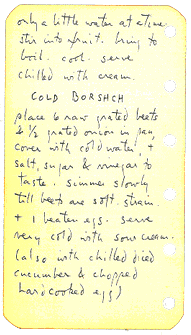 only a little water at a time.
stir into fruit. bring to
boil. cool. serve
chilled with cream.
COLD BORSHCH
place 6 raw grated beets
& ½ grated onion in pan,
cover with cold water. +
salt, sugar & vinegar to
taste. simmer slowly
till beets are soft. strain.
+ 1 beaten egg. serve
very cold with sour cream.
(also with chilled diced
cucumber & chopped
hardcooked egg)